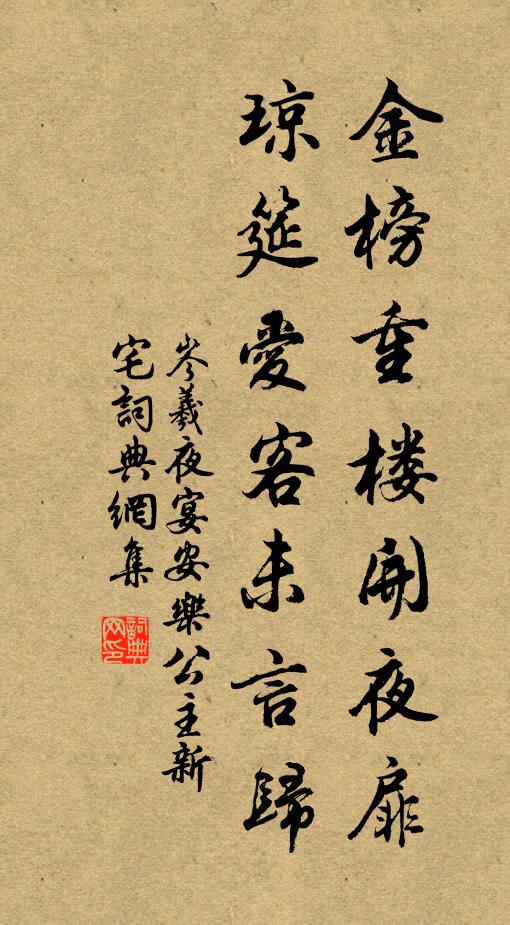 金榜重楼開夜扉
琼筵愛客未言歸
岑羲夜宴安樂公主新
宅詞典網集
詞典
网印